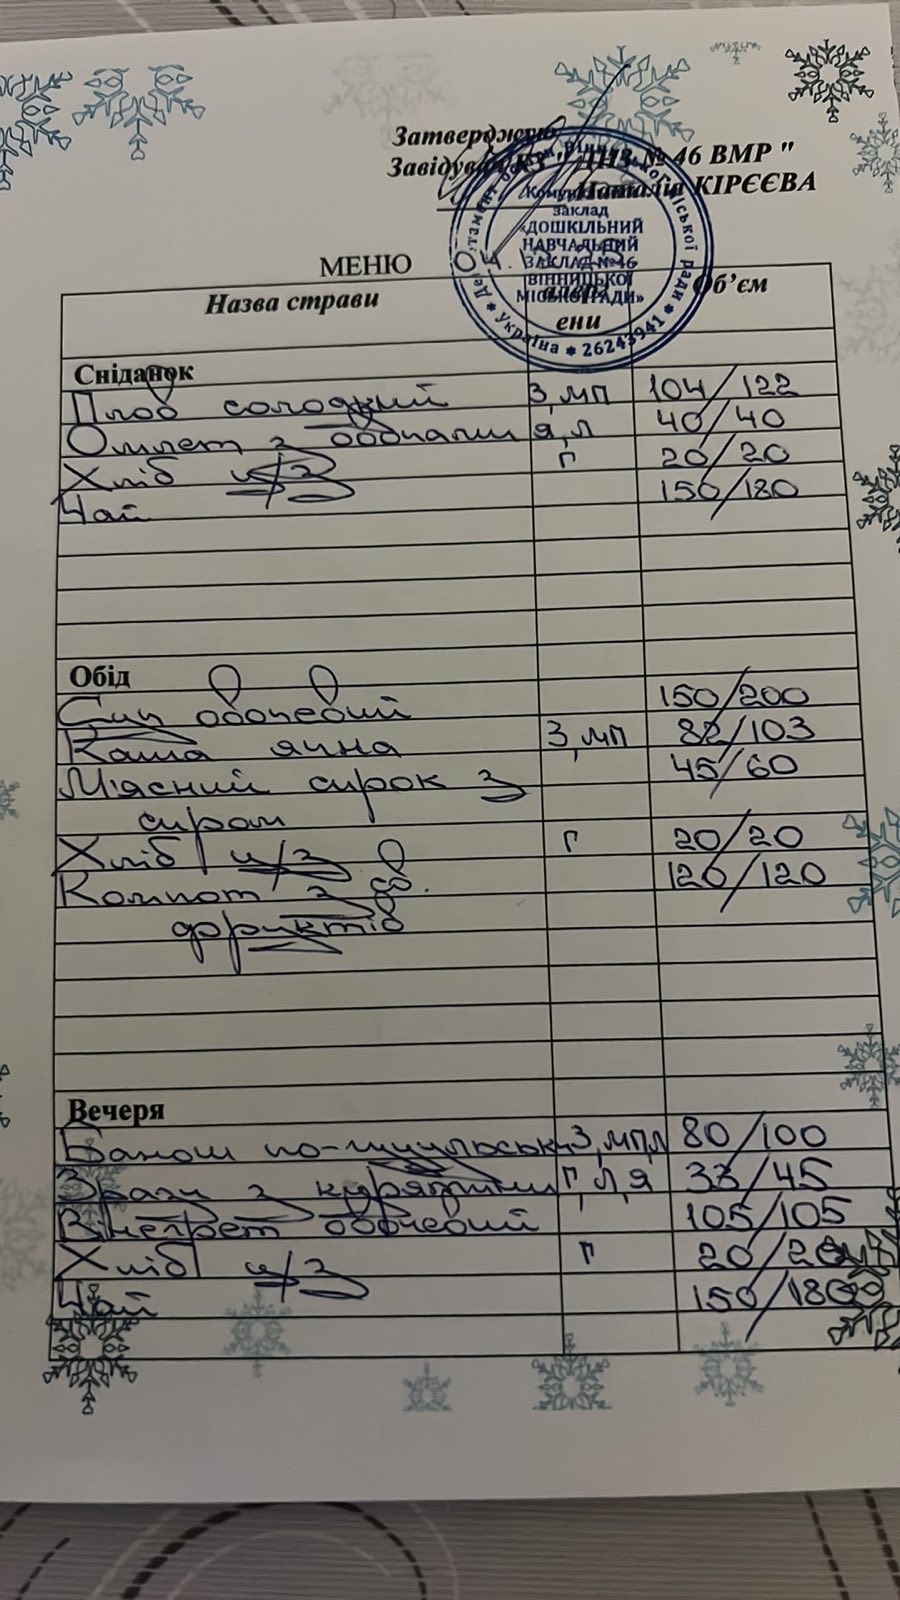 Затверджую
Завідувач КЗ " ДНЗ № 46 ВМР "
Наталія КІРЄЄВА
Комунальний
заклад
«ДОШКІЛЬНИЙ
НАВЧАЛЬНИЙ
ЗАКЛАД №46
ВІННИЦЬКОЇ
МІСЬКОЇ РАДИ»
Україна * 26243941 *
МЕНЮ
Назва страви алерг Об’єм
ени
Сніданок
Плов солодкий З,МП 104/122
Омлет з овочами я,л 40/40
Хліб ц/з г 20/20
Чай 150/180
Обід
Суп овочевий 150/200
Каша ячна З,МП 82/103
М'ясний сирок з 45/60
сиром
Хліб ц/з г 20/20
Компот з св. 120/120
фруктів
Вечеря
Банош по-гуцульськи З,МПЛ 80/100
Зрази з курятини г,л,я 33/45
Вінегрет овочевий 105/105
Хліб ц/з г 20/20
Чай 150/180